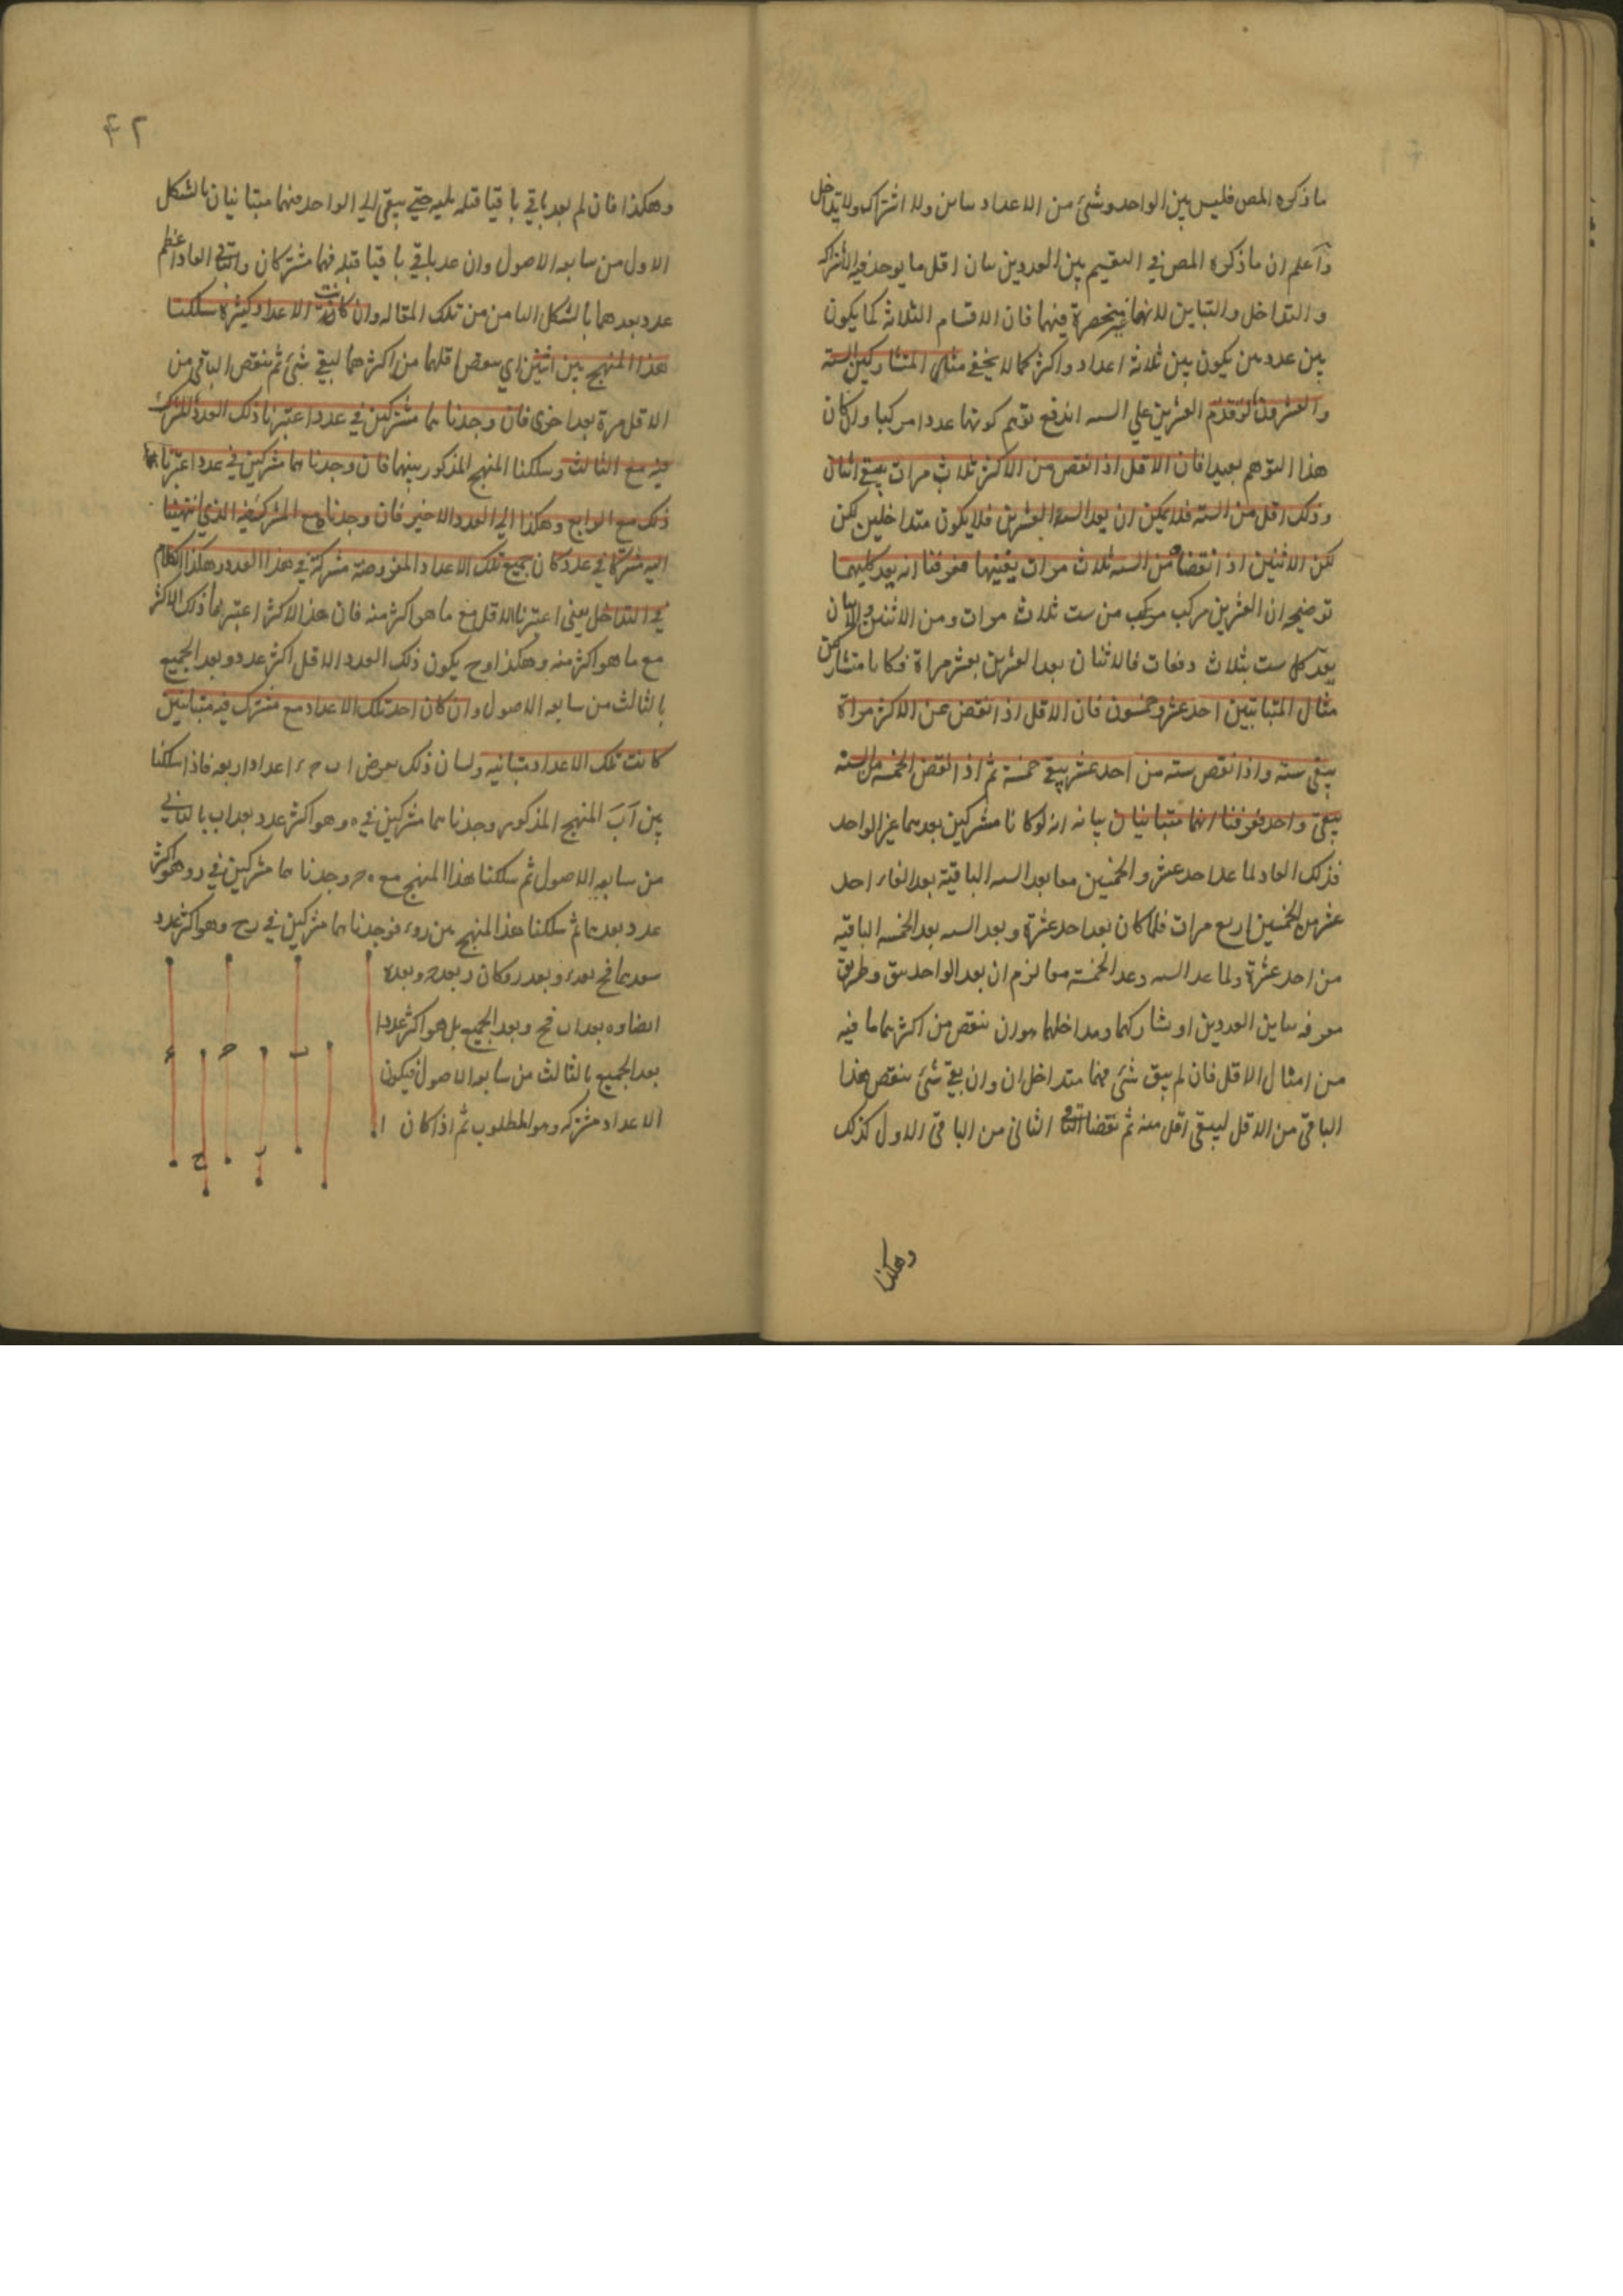 ما ذكره المص فليس بين الواحد وشئ من الاعداد تباين ولا اشتراك ولا تداخل
وآعلم ان ما ذكره المص في التقسيم بين العددين بيان اقل ما يوجد فيه الاشتراك
والتداخل والتباين لا انها منحصرة فيهما فان الاقسام الثلاثه كما يكون
بين عددين يكون بين ثلاثة اعداد واكثر كما لا يخفى مثال المتشاركين الستة
والعشرون لو قدم العشرين على السته اندفع توهم كونها عددا مركبا وان كان
هذا التوهم بعيدا فان الاقل اذا نقص من الاكثر ثلاث مرات يبقى اثنان
وذلك اقل من السته فلا يمكن ان يعد الستة العشرين فلا يكون متداخلين لكن
لكن الاثنين اذ انقضا من السته ثلاث مرات يفنيها فعرفنا انه يعد كليهما
توضيحه ان العشرين مركب مركب من ست ثلاث مرات ومن الاثنين والاثنان
يعد كل ست بثلاث دفعات فالاثنان يعد العشرين بعشر مراة فكانا متشاركين
مثال المتباينين احد عشر وخمسون فان الاقل اذ انقص عن الاكثر مراة
يبقى سته واذا نقص سته من احد عشر يبقى خمسة ثم اذ انقص الخمسه من السته
يبقى واحد فعرفنا انهما متبانيان بيانه انه لو كانا مشتركين بعدهما غير الواحد
فذلك العاد لما عد احد عشر والخمسين معا يعد السته الباقية بعد الفاء احد
عشر من الخمسين اربع مرات فلما كان يعد احد عشرة ويعد السته يعد الخمسه الباقيه
من احد عشرة ولما عد السته وعد الخمسة معا لزم ان يعد الواحد سق وطريق
معرفه تباين العددين او تشاركهما ومداخلهما هو ان ننقص من اكثرهما ما فيه
من امثال الاقل فان لم يبق شئ فهما متداخلان وان بقى شئ ننقص هذا
الباقي من الاقل ليبقى اقل منه ثم نقضنا الثانى من الباقى الاول كذلك
وهكذا
٤٢
وهكذا فان لم يعد باقي باقيا قبله يليه حتى يبقى الى الواحد فهما متبانيان بالشكل
الاول من سابعه الاصول وان عد باقي باقيا قبله فهما مشتركان والباقي العاد اعظم
عدد يعدهما بالشكل الثامن من تلك المقاله وان كانت الاعداد كثيرة سلكنا
هذا المنهج بين اثنين اي ننقص اقلهما من اكثرهما ليبقى شئ ثم ننقص الباقى من
الاقل مرة بعد اخرى فان وجدناهما مشتركين في عدد اعتبرنا ذلك العدد المشترك
فيه مع الثالث وسلكنا المنهج المذكور بينهما فان وجدناهما مشتركين في عدد اعتبرنا
ذلك مع الرابع وهكذا الى العدد الاخير فان وجدناه مع المشترك فيه الذي انتهينا
اليه مشتركا في عدد كان جميع تلك الاعداد المفروضة مشتركة في هذا العدد وهكذا الكلام
في التداخل يعنى اعتبرنا الاقل مع ما هو اكثر منه فان هذا الاكثر اعتبرها ذلك الاكثر
مع ما هو اكثر منه وهكذا وح يكون ذلك العدد الاقل اكثر عدد يعد الجميع
بالثالث من سابعه الاصول وان كان احد تلك الاعداد مع مشترك فيه متباينين
كانت تلك الاعداد متباينه ولبيان ذلك نعرض ا ب ح ء اعدادا اربعه فاذا سلكنا
بين آ ب المنهج المذكور وجدناهما مشتركين في ه وهو اكثر عدد يعد ا ب بالثاني
من سابعه الاصول ثم سلكنا هذا المنهج مع ه ح وجدناهما مشتركين في ر وهو اكثر
عدد يعدهما ثم سلكنا هذا المنهج بين ر وء فوجدناهما مشتركين في ح وهو اكثر عدد
يعدهما فح يعد ء ويعد ر وكان ر يعد ح ويعد ه
ايضا و ه يعد ا ب فح ويعد الجميع بل هو اكثر عددا
يعد الجميع بالثالث من سابعه الاصول فيكون
الاعداد مشتركه وهو المطلوب ثم اذا كان
ا
ب
ح
ء
ر
ح